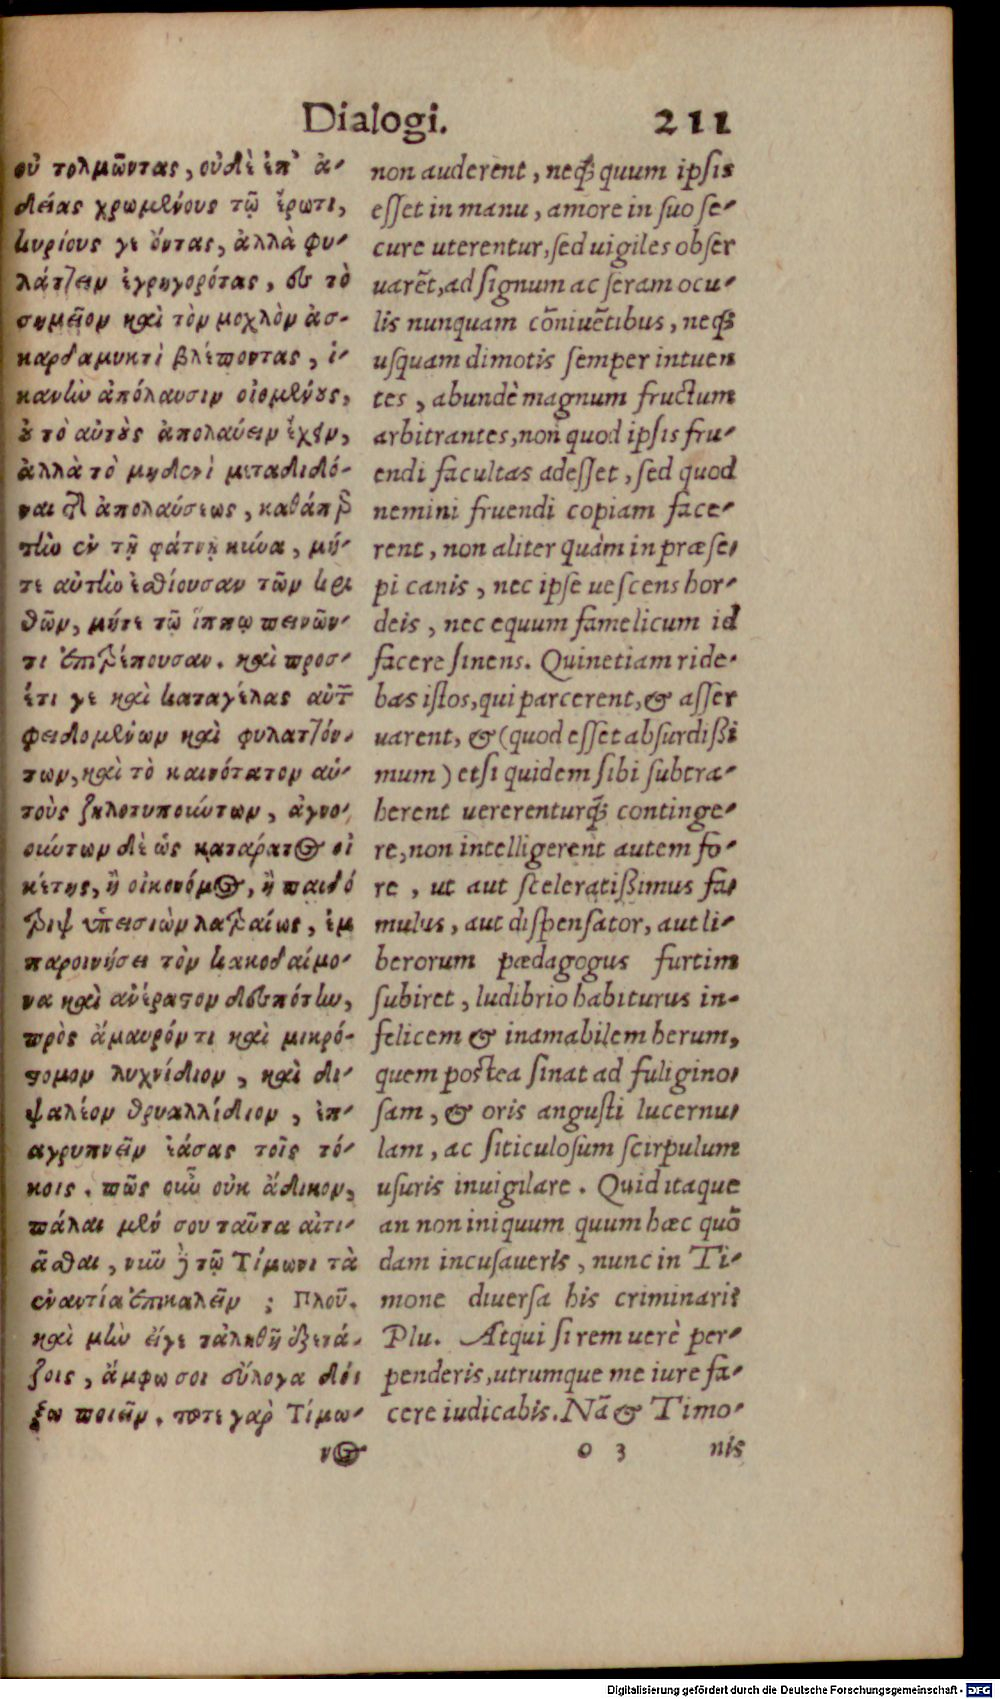 Dialogi. 211
οὐ τολμῶντας, οὐδὲ ἐπ' ἀ-
δείας χρωμένους τῷ ἔρωτι,
κυρίους γε ὄντας, ἀλλὰ φυ-
λάττειν ἐγρηγορότας, ἐς τὸ
σημεῖον καὶ τὸν μοχλὸν ἀσ-
καρδαμυκτὶ βλέποντας, ἱ-
κανὴν ἀπόλαυσιν οἰομένους,
οὐ τὸ αὐτοὺς ἀπολαύειν ἔχειν,
ἀλλὰ τὸ μηδενὶ μεταδιδό-
ναι τῆς ἀπολαύσεως, καθάπερ
τὴν ἐν τῇ φάτνῃ κύνα, μή-
τε αὐτὴν ἐσθίουσαν τῶν κρι
θῶν, μήτε τῷ ἵππῳ πεινῶν-
τι ἐπιτρέπουσαν. καὶ προσ-
έτι γε καὶ καταγέλας αὐτῶν
φειδομένων καὶ φυλαττόν-
των, καὶ τὸ καινότατον αὑ-
τοὺς ζηλοτυπούντων, ἀγνο-
ούντων δὲ ὡς κατάρατος οἰ
κέτης, ἢ οἰκονόμος, ἢ παιδό
τριψ ὑπεισιὼν λαθραίως, ἐμ
παροινήσει τὸν κακοδαίμο-
να καὶ ἀνέραστον δεσπότην,
πρὸς ἀμαυρόν τι καὶ μικρό-
στομον λυχνίδιον, καὶ δι-
ψαλέον θρυαλλίδιον, ἐπ-
αγρυπνεῖν ἐάσας τοῖς τό-
κοις. πῶς οὖν οὐκ ἄδικον,
πάλαι μέν σου ταῦτα αἰτι-
ᾶσθαι, νῦν δὲ τῷ Τίμωνι τὰ
ἐναντία ἐπικαλεῖν ; Πλοῦ.
καὶ μὴν εἴγε τἀληθῆ ἐξετά-
ζοις, ἄμφω σοι εὔλογα δόξω
ποιεῖν. τότε γὰρ Τίμω-
νος
non auderent, neq; quum ipsis
esset in manu, amore in suo se-
cure uterentur, sed uigiles obser
uarēt, ad signum ac seram ocu-
lis nunquam cōniuētibus, neq;
usquam dimotis semper intuen
tes, abundè magnum fructum
arbitrantes, non quod ipsis fru-
endi facultas adesset, sed quod
nemini fruendi copiam face-
rent, non aliter quàm in præse-
pi canis, nec ipse uescens hor-
deis, nec equum famelicum id
facere sinens. Quinetiam ride-
bas istos, qui parcerent, & asser
uarent, & (quod esset absurdissi
mum) etsi quidem sibi subtra-
herent uererenturq; continge-
re, non intelligerent autem fo-
re, ut aut sceleratissimus fa-
mulus, aut dispensator, aut li-
berorum pædagogus furtim
subiret, ludibrio habiturus in-
felicem & inamabilem herum,
quem postea sinat ad fuligino-
sam, & oris angusti lucernu-
lam, ac siticulosum scirpulum
usuris inuigilare. Quid itaque
an non iniquum quum hæc quō
dam incusaueris, nunc in Ti-
mone diuersa his criminari?
Plu. Atqui si rem uerè per-
penderis, utrumque me iure fa-
cere iudicabis. Nā & Timo-
o 3 nis
Digitalisierung gefördert durch die Deutsche Forschungsgemeinschaft - DFG